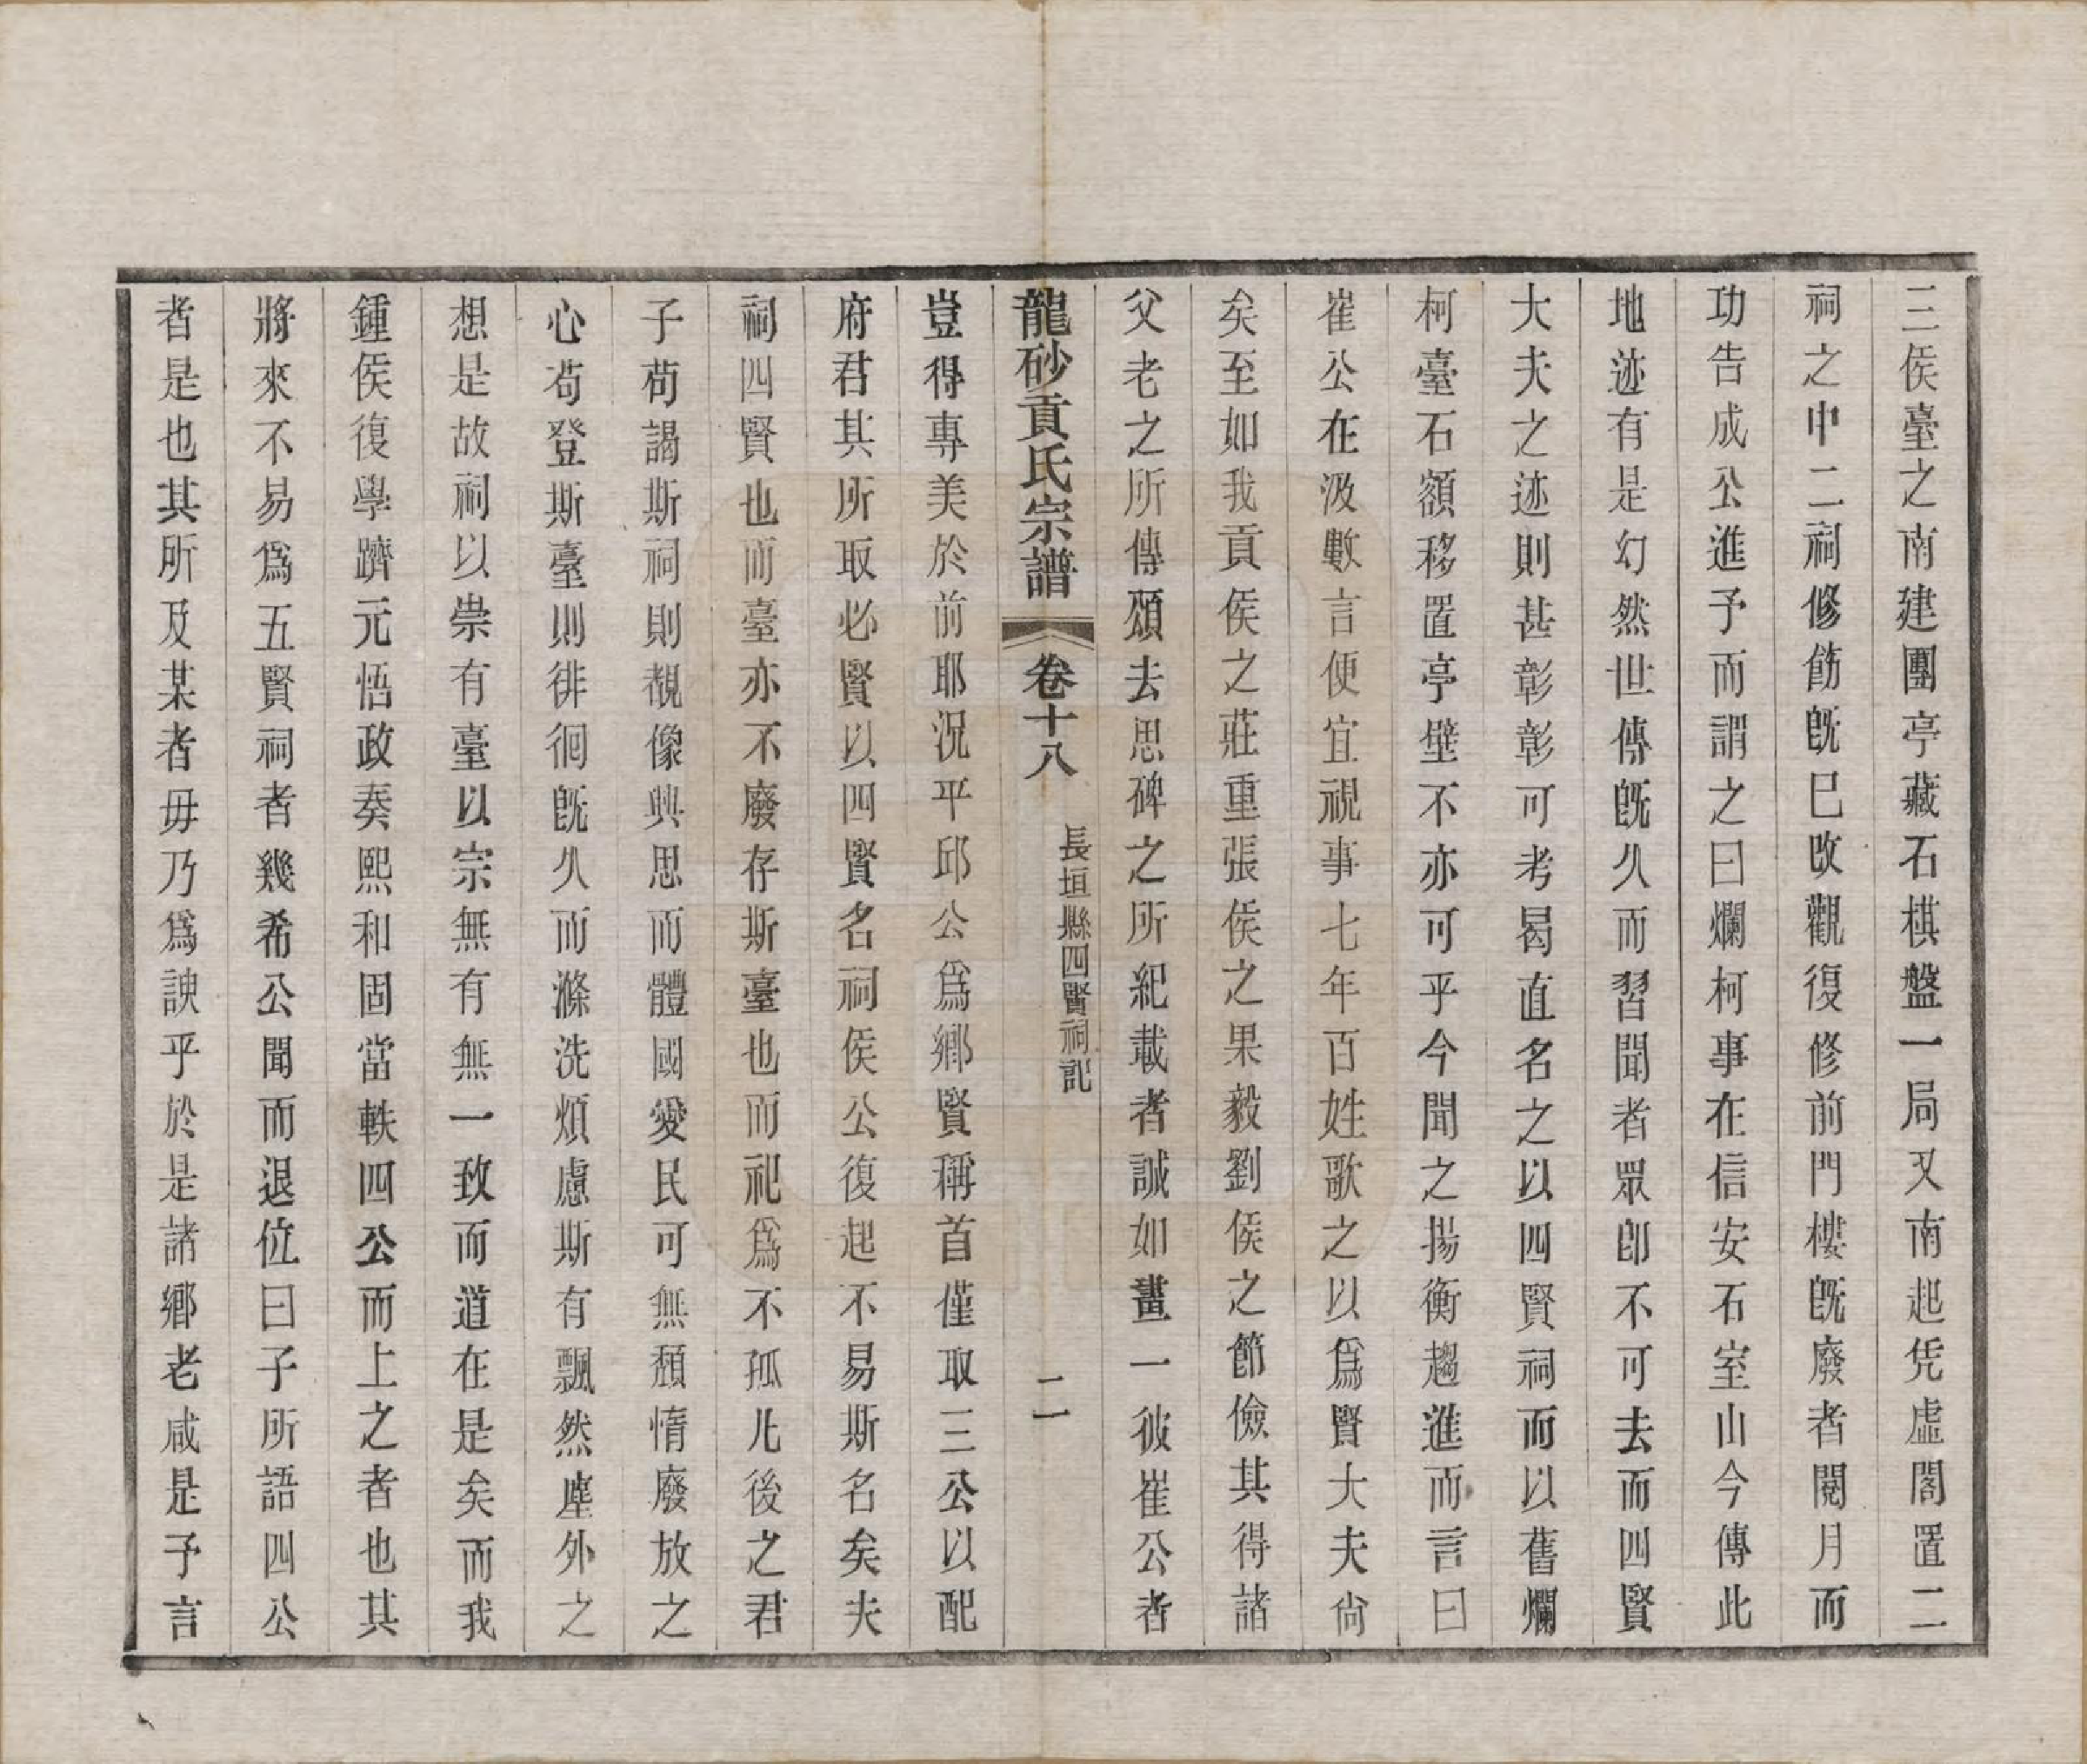 三侯臺之南建團亭藏石棋盤一局又南起凭虛閣置二
祠之中二祠修飭旣已改觀復修前門樓旣廢者閱月而
功告成公進予而謂之曰爛柯事在信安石室山今傳此
地迹有是幻然世傳旣久而習聞者眾卽不可去而四賢
大夫之迹則甚彰彰可考曷直名之以四賢祠而以舊爛
柯臺石額移置亭壁不亦可乎今聞之揚衡趨進而言曰
崔公在汲數言便宜視事七年百姓歌之以爲賢大夫尙
矣至如我貢侯之莊重張侯之果毅劉侯之節儉其得諸
父老之所傳頌去思碑之所紀載者誠如畫一彼崔公者
龍砂貢氏宗譜 卷十八 長垣縣四賢祠記 二
豈得專美於前耶況平邱公爲鄉賢稱首僅取三公以配
府君其所取必賢以四賢名祠侯公復起不易斯名矣夫
祠四賢也而臺亦不廢存斯臺也而祀爲不孤凡後之君
子苟謁斯祠則覩像興思而體國愛民可無頹惰廢放之
心苟登斯臺則徘徊旣久而滌洗煩慮斯有飄然塵外之
想是故祠以崇有臺以宗無有無一致而道在是矣而我
鍾侯復學躋元悟政奏熙和固當軼四公而上之者也其
將來不易爲五賢祠者幾希公聞而退位曰子所語四公
者是也其所及某者毋乃爲諛乎於是諸鄉老咸是予言